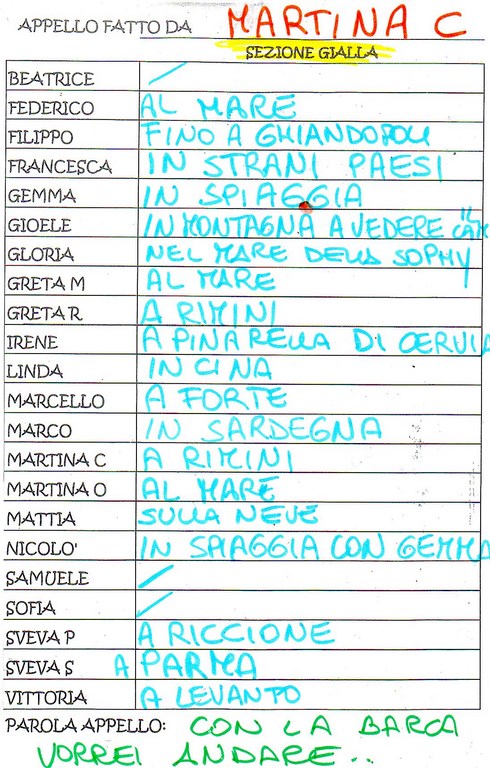 APPELLO FATTO DA MARTINA C
SEZIONE GIALLA
BEATRICE /
FEDERICO AL MARE
FILIPPO FINO A GHIANDOPOLI
FRANCESCA IN STRANI PAESI
GEMMA IN SPIAGGIA
GIOELE IN MONTAGNA A VEDERE IL
GLORIA NEL MARE DELLA SOPHY
GRETA M AL MARE
GRETA R A RIMINI
IRENE A PINARELLA DI CERVIA
LINDA IN CINA
MARCELLO A FORTE
MARCO IN SARDEGNA
MARTINA C A RIMINI
MARTINA O AL MARE
MATTIA SULLA NEVE
NICOLO' IN SPIAGGIA CON GEMMA
SAMUELE /
SOFIA /
SVEVA P A RICCIONE
SVEVA S A PARMA
VITTORIA A LEVANTO
PAROLA APPELLO: CON LA BARCA
VORREI ANDARE...